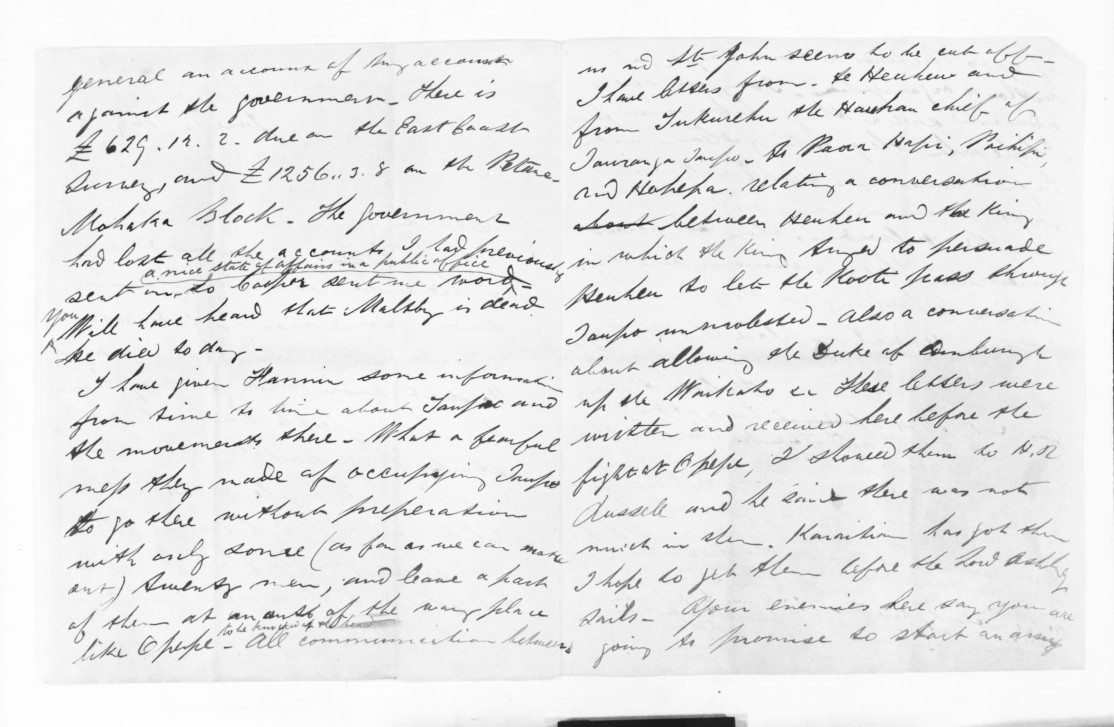 general an account of my account
against the government - There is
£629.12.2. due on the East Coast
Survey, and £1256..3.8 on the Petane
Mohaka Block - The Government
had lost all the accounts I had previously
a nice state of affairs in a public office
sent in, so Cooper sent me word -
You
Will have heard that Maltby is dead.
he died to day -
I have given Hannin some information
from time to time about Taupo and
the movements there - What a fearful
mess they made of occupying Taupo
to go there without preperation
with only some (as far as we can make
out) twenty men, and leave a part
of them at an out of the way place
to be knocked on the head
like Opepe - All communication between
us and St John seems to be cut off -
I have letters from Te Heuheu and
from Tukurehu the Hauhau chief of
Tauranga Taupo - to Paora Hapi, Poihipi,
and Hohepa. relating a conversation
about between Heuheu and the King
in which the King tryed to persuade
Heuheu to let Te Koote pass through
Taupo unmolested - also a conversation
about allowing the Duke of Edinburgh
up the Waikato &c These letters were
written and received here before the
fight at Opepe, I showed them to H.R
Russell and he said there was not
much in them. Karaitian has got them
I hope to get them before the Lord Ashley
sails - Your enemies here say you are
going to promise to start an